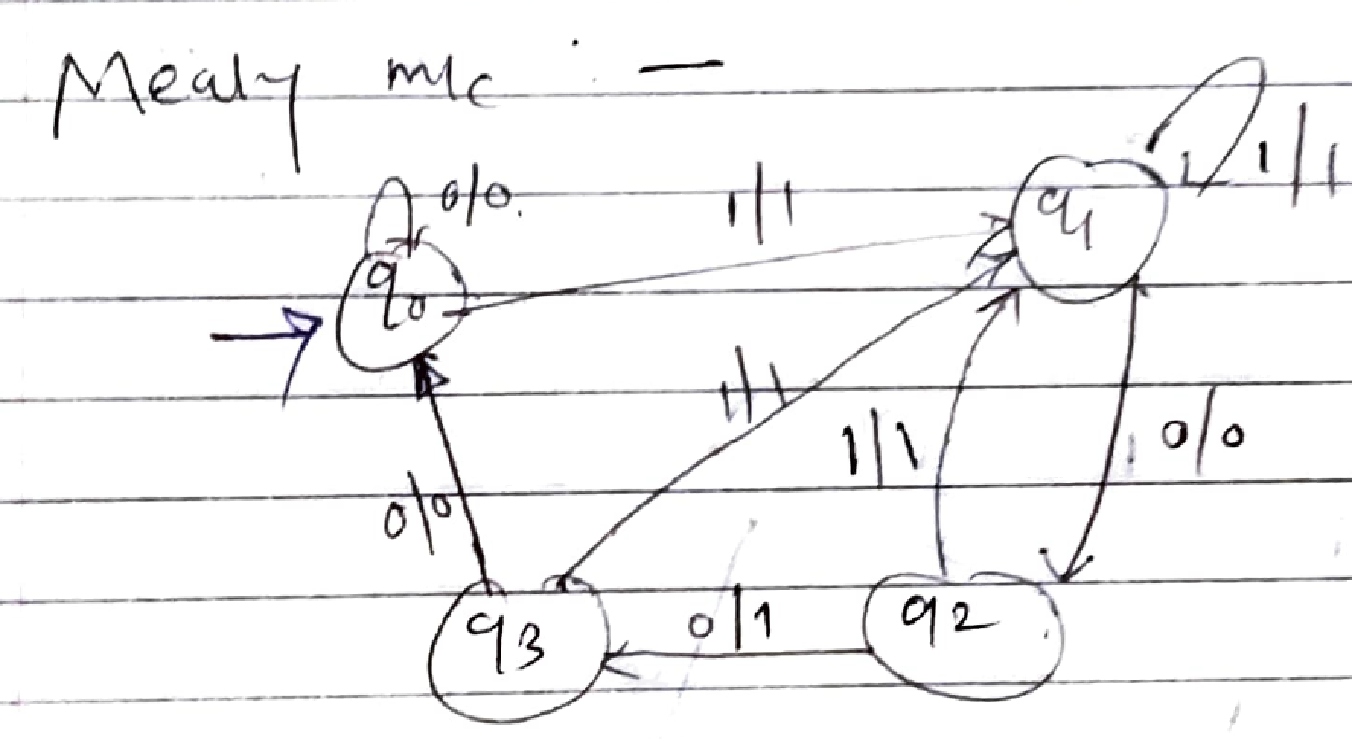 Mealy m/c : —
0/0.
1/1
q1
1/1
q0
1/1
1/1
0/0
0/0
q3
0/1
q2